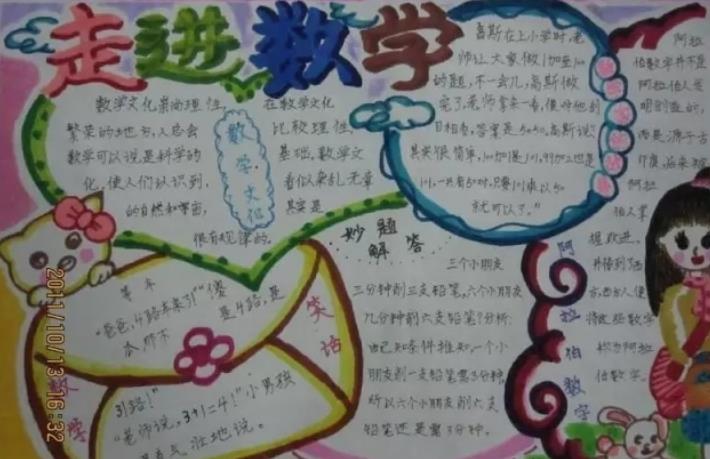 走进数学
数学文化崇尚理性,
繁荣的地方,人总会
数学可以说是科学的
化,使人们认识到,
的自然和宇宙,
很有规律的。
在数学文化
比较理性,
基础,数学文
看似杂乱无章
其实是
数学文化
高斯在上小学时,老
师让大家做1加至100
的题,不一会儿,高斯做
完了,老师拿来一看,便对他刮
目相看,答案是5050,高斯说:"
其实很简单,100加1是101,99加2也是
101,一共有50对,只要101乘以50
就可以了。"
阿拉
伯数字并不是
阿拉伯人发
明创造的,
而是源于古
印度,后来被
阿拉
伯人掌
握、改进,
并传到了西
方,西方人便
将这些数字
称为阿拉
伯数字。
阿拉伯数字
妙题
解答
三个小朋友
三分钟削三支铅笔,六个小朋友
几分钟削六支铅笔?分析:
由已知条件推知,一个小
朋友削一支铅笔需3分钟,
所以六个小朋友削六支
铅笔还是需3分钟。
等车
"爸爸,4路车来了!""傻
是4路,是
31路!"
"老师说,3+1=4!"小男孩
壮地说。
数学
笑话
2011/10/13 16:32